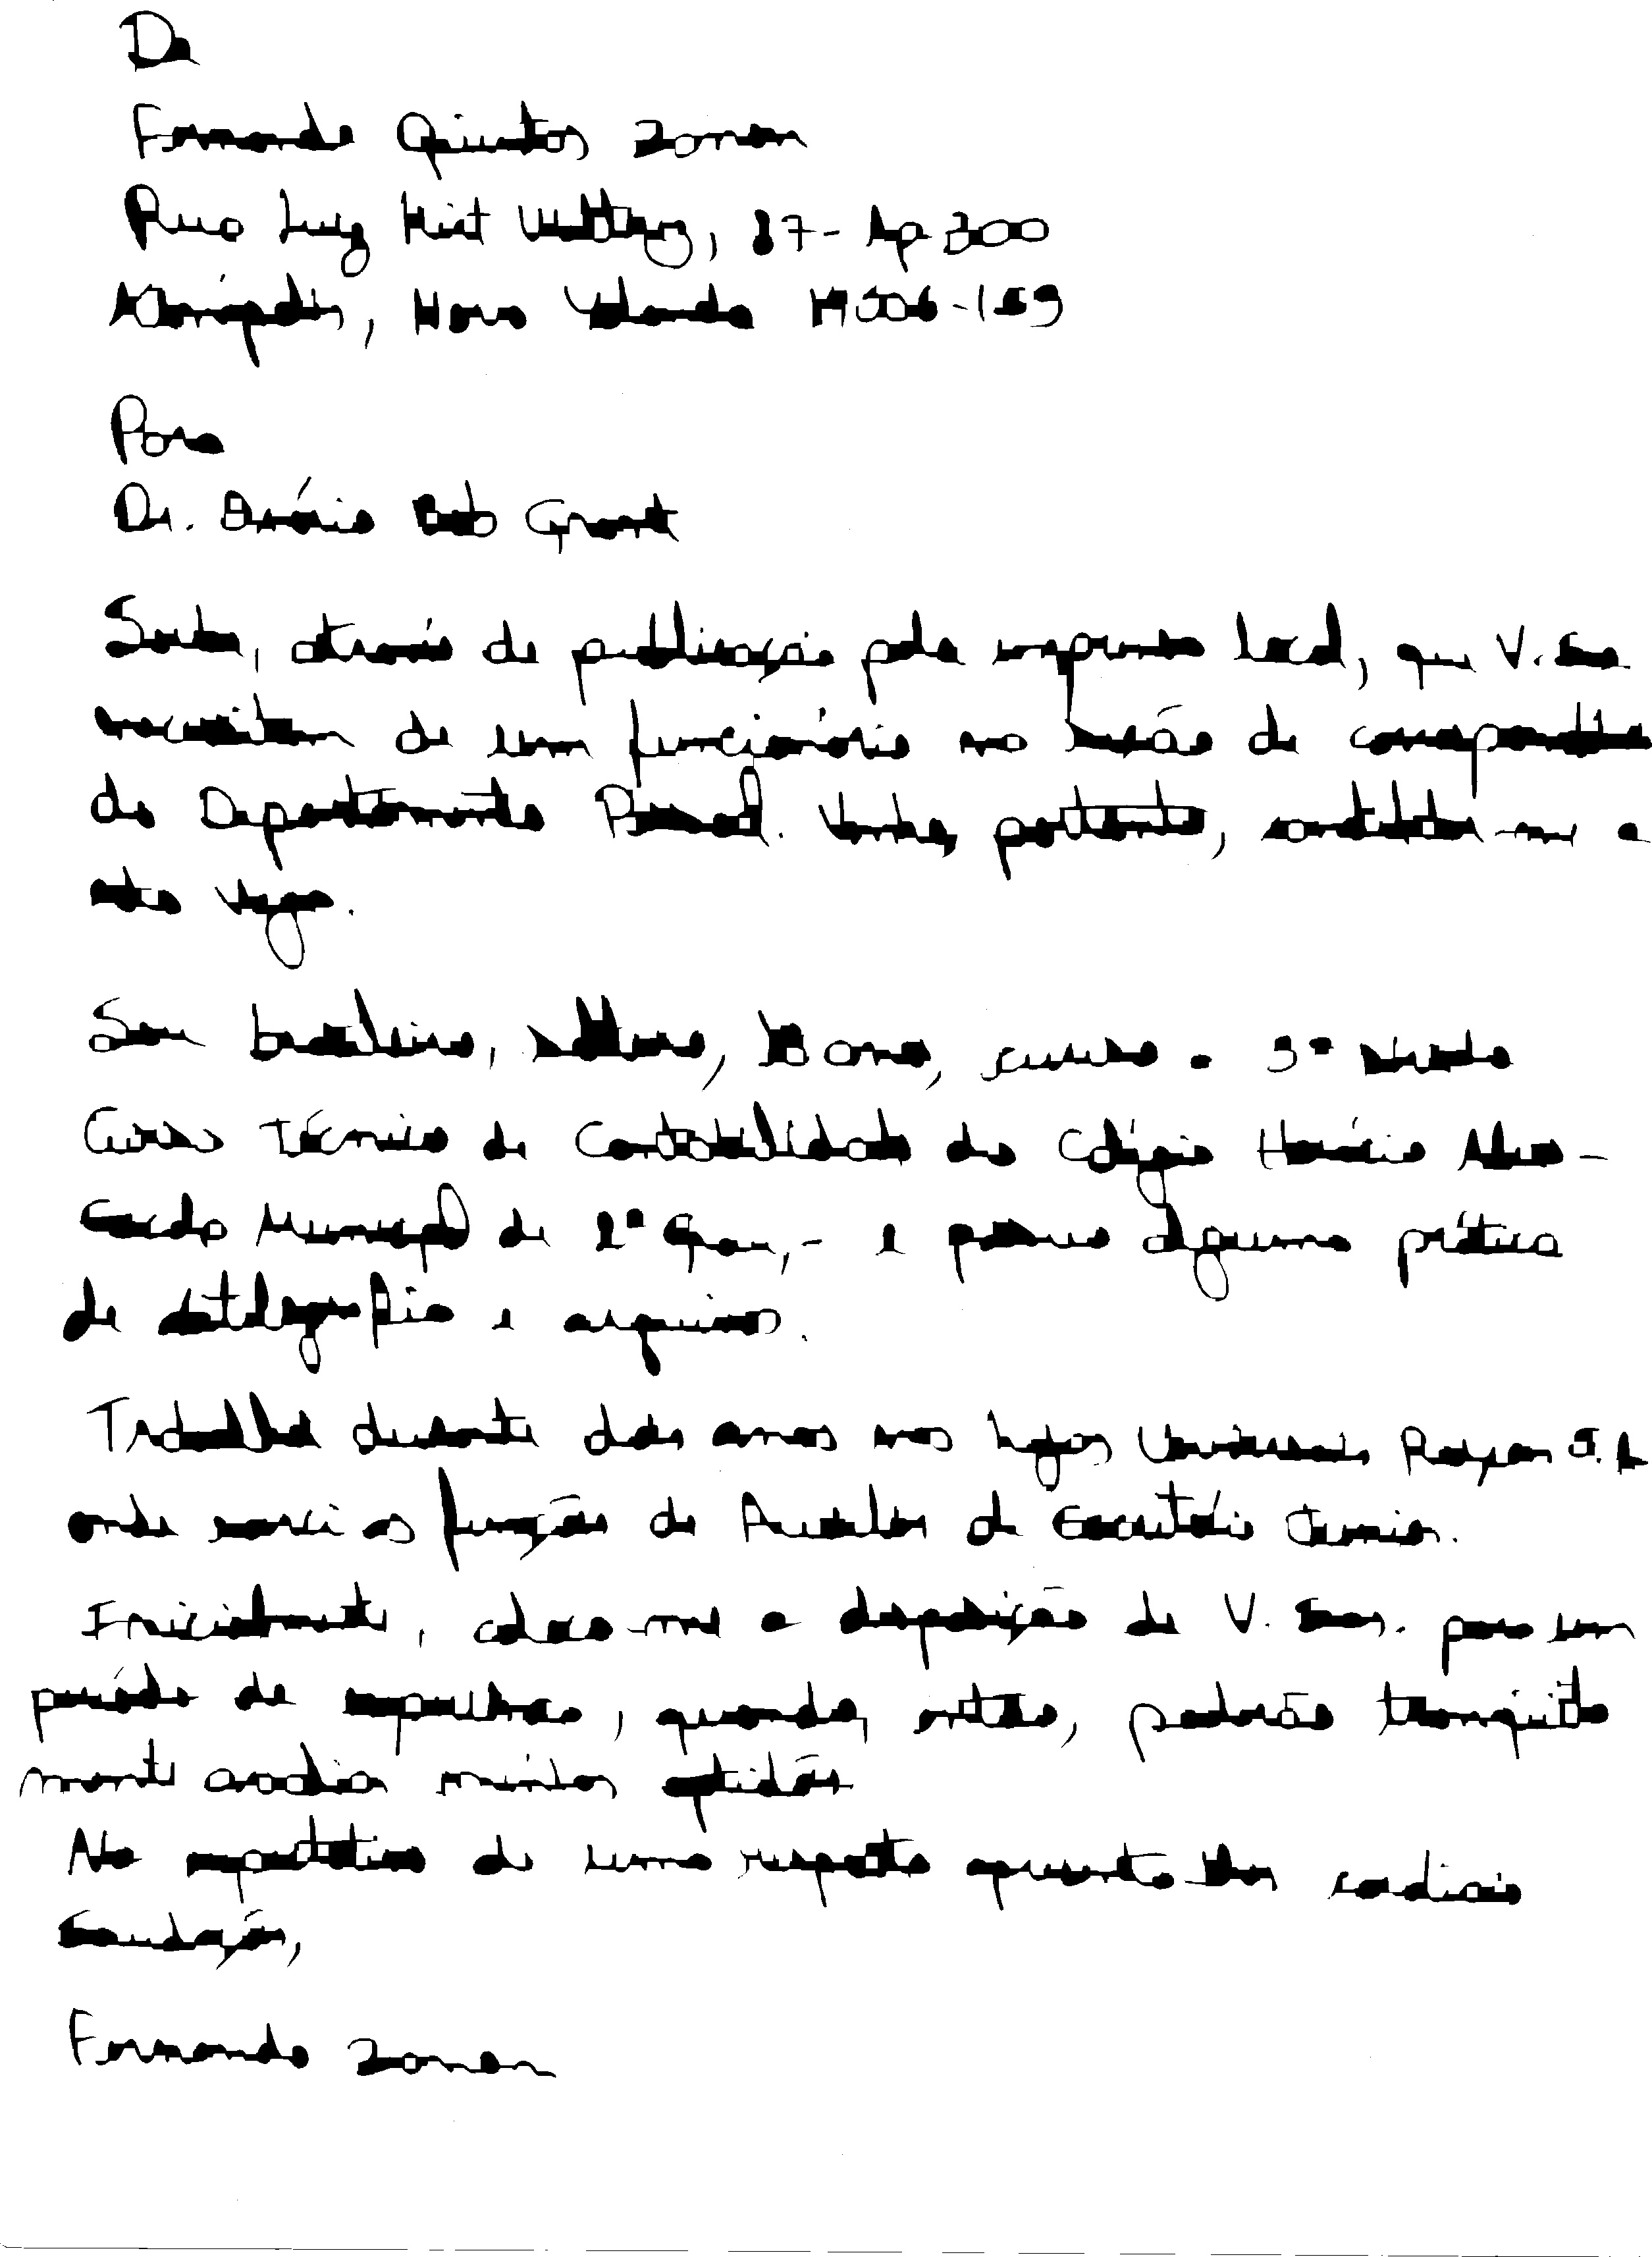 De
Fernando Quintos Zoman
Rua Luiz Kint, 87 - Ap 300
, Nova Yolanda -159
Para
Dr. Bob Grant
Soube, através de publicação pela imprensa local, que V. Sas
necessitam de um funcionário na seção de
do Departamento Pessoal. Venho, portanto, candidatar-me a
esta vaga.
Sou brasileiro, solteiro, 18 anos, curso o 3º
Curso Técnico de Contabilidade do Colégio Horácio Alves -
Escola Municipal de 2º Grau, - e possuo alguma prática
de datilografia e arquivos.
Trabalhei durante dois anos nas lojas Universais Rayan S.A
onde exerci as função de Auxiliar de Escritório Junior.
Inicialmente, coloco-me a disposição de V. Sas. para um
período de experiência, quando, então, poderão tranquila
mente avaliar minhas aptidões
Na expectativa de uma resposta apresento-lhes cordiais
saudações,
Fernando Zoman